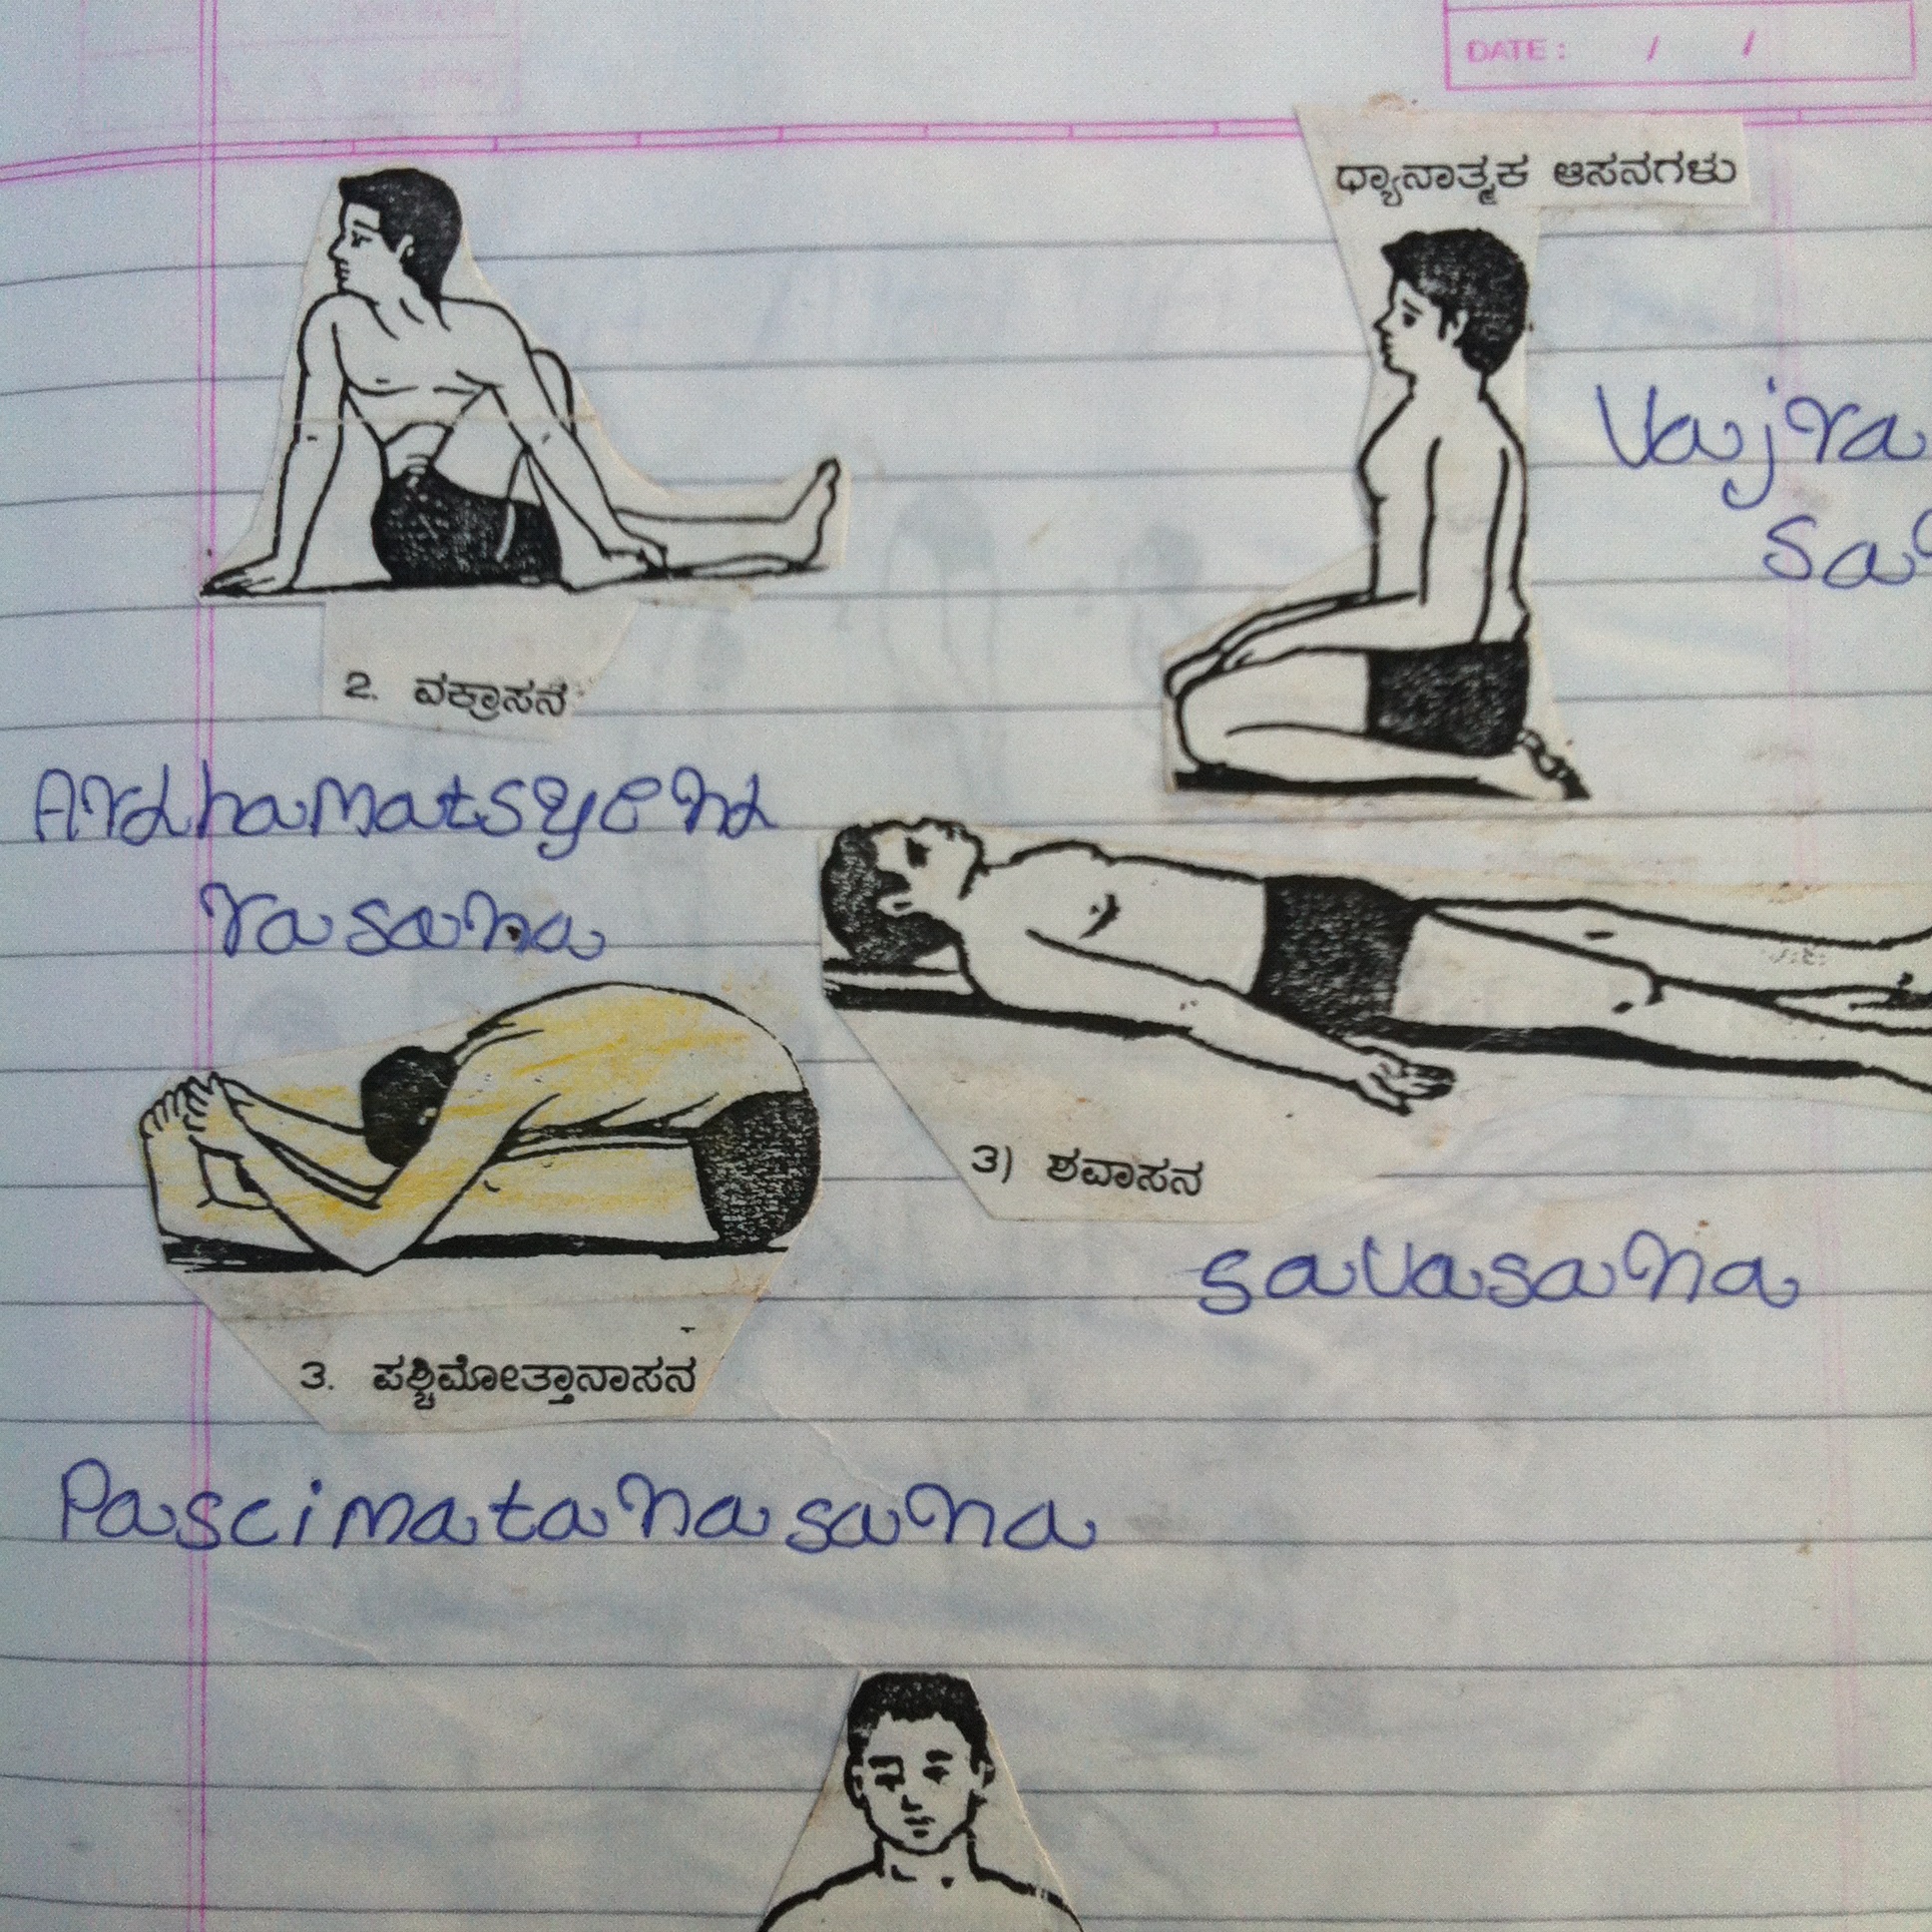 DATE : / /
ಧ್ಯಾನಾತ್ಮಕ ಆಸನಗಳು
Vajra
2. ವಕ್ರಾಸನ
Ardhamatsyend
rasana
3) ಶವಾಸನ
savasana
3. ಪಶ್ಚಿಮೋತ್ತಾನಾಸನ
Pascimatanasana